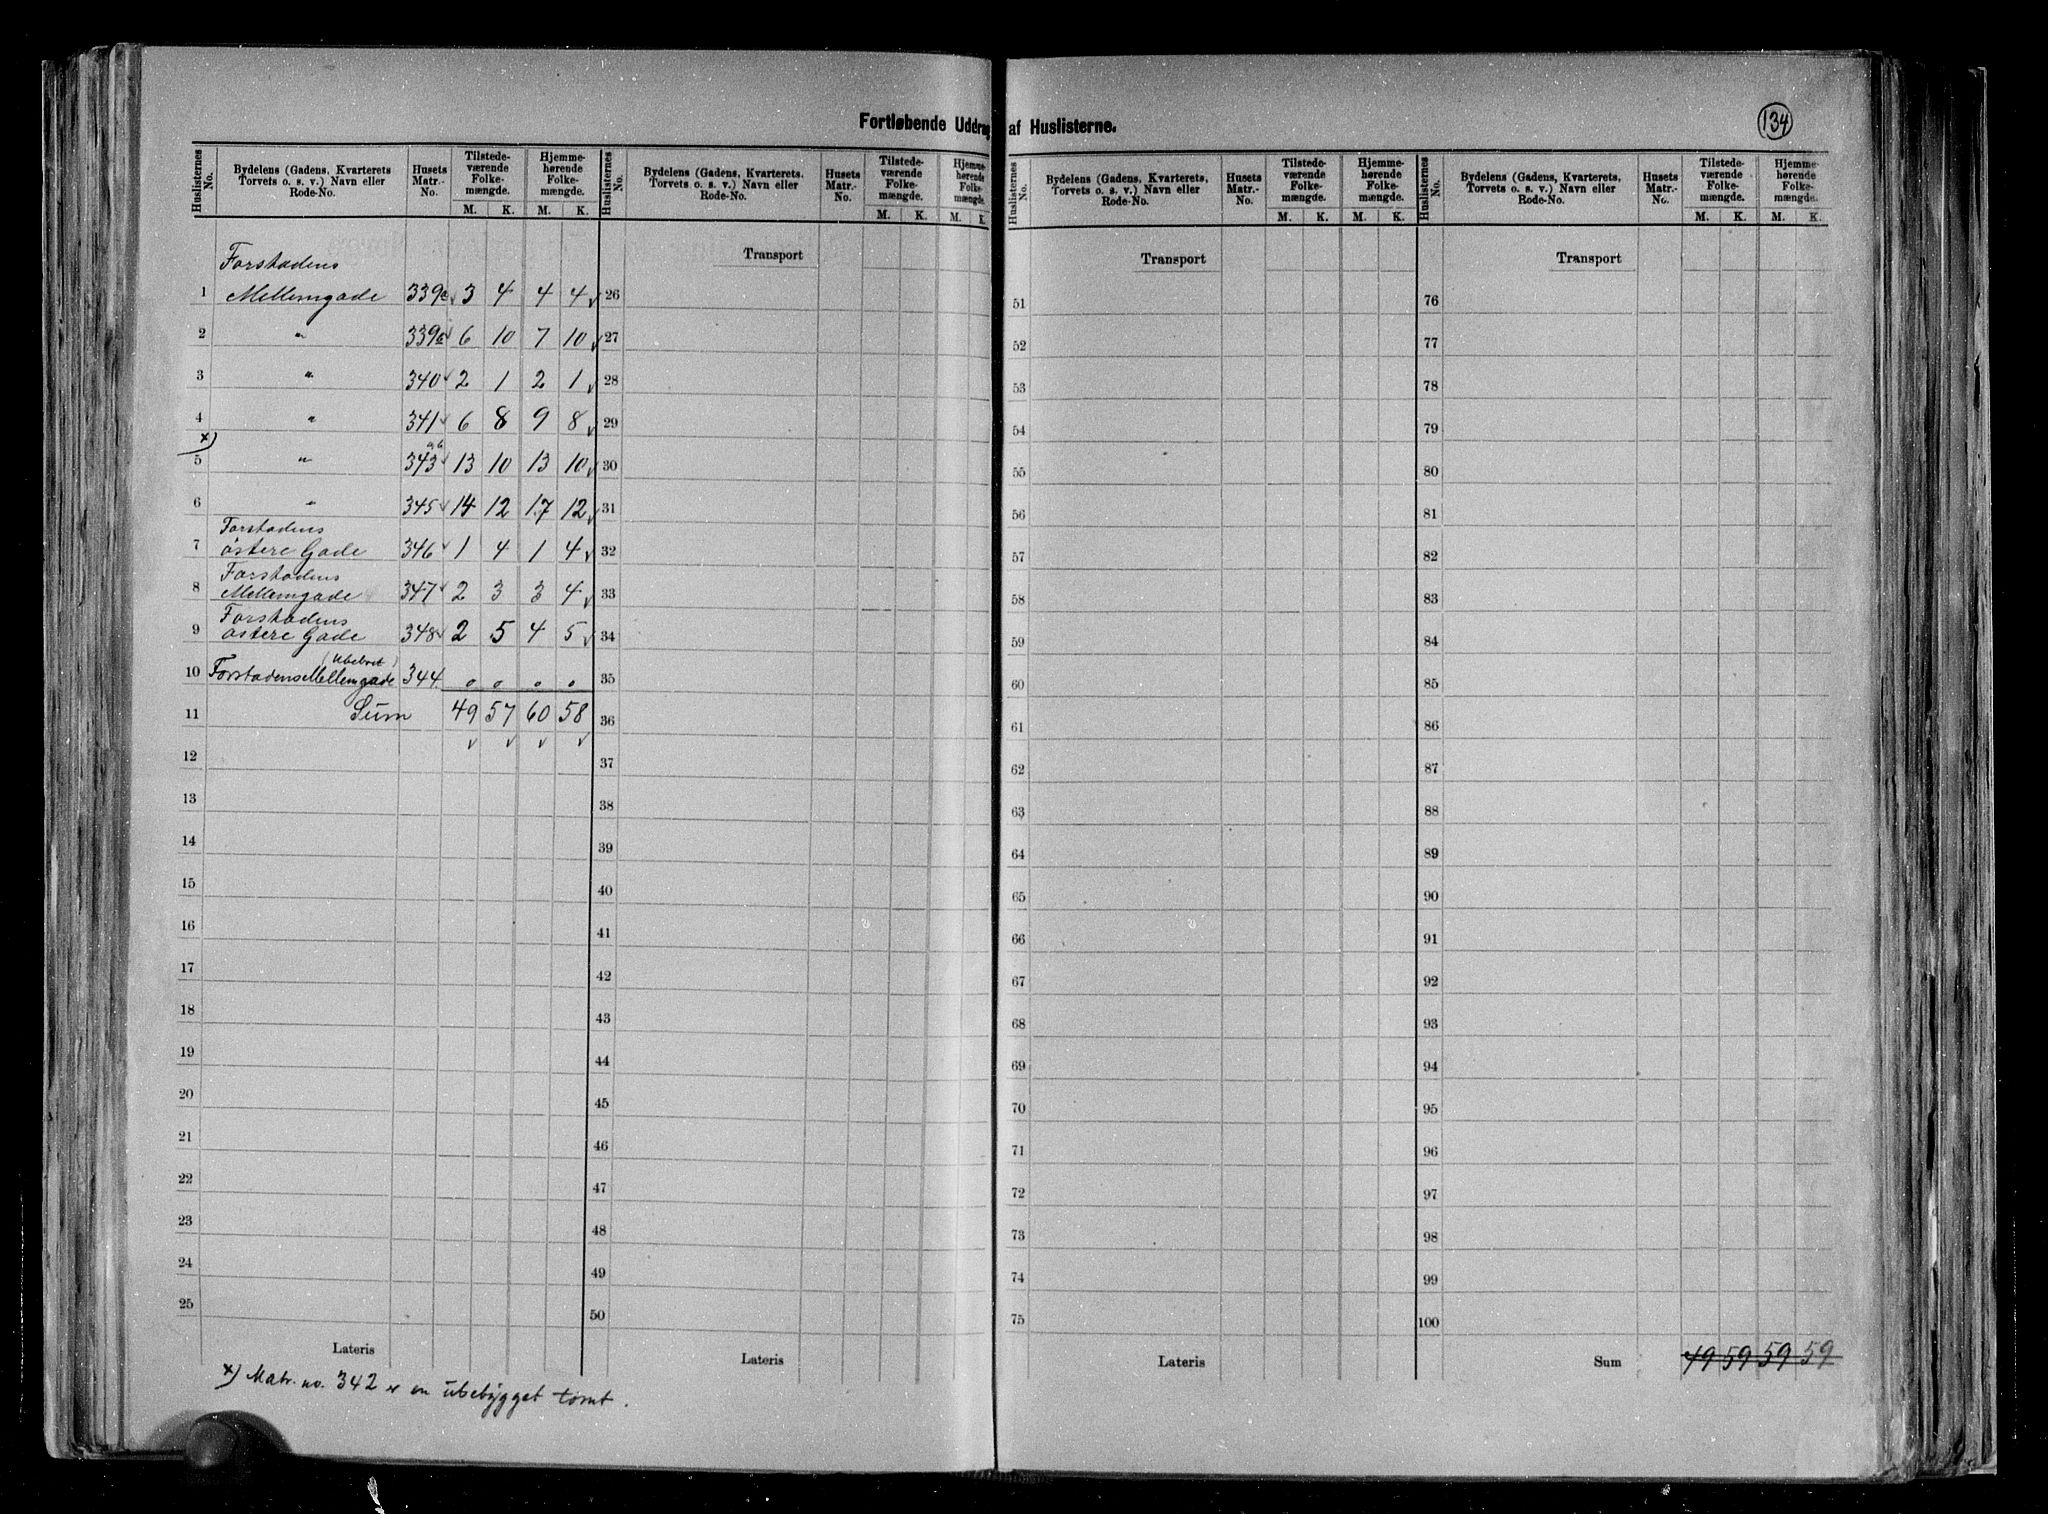 Fortløbende Uddrag af Huslisterne.
134
Huslisternes No. | Bydelens (Gadens, Kvarterets Torvets o. s. v.) Navn eller Rode-No. | Husets Matr.-No. | Tilstedeværende Folkemængde. M. K. | Hjemmehørende Folkemængde. M. K.
Forstadens
1 Mellemgade 339c 3 4 4 4
2 " 339a 6 10 7 10
3 " 340 2 1 2 1
4 " 341 6 8 9 8
x)
5 " 343 ab 13 10 13 10
6 " 345 14 12 17 12
Forstadens
7 östere Gade 346 1 4 1 4
Forstadens
8 Mellemgade 347 2 3 3 4
Forstadens
9 östere Gade 348 2 5 4 5
(Ubeboet)
10 Forstadens Mellemgade 344 0 0 0 0
11 Sum 49 57 60 58
12
13
14
15
16
17
18
19
20
21
22
23
24
25
Lateris
x) Matr. no. 342 er en ubebygget tomt.
Huslisternes No. | Bydelens (Gadens, Kvarterets, Torvets o. s. v.) Navn eller Rode-No. | Husets Matr.-No. | Tilstedeværende Folkemængde. M. K. | Hjemmehørende Folkemængde. M. K.
Transport
26
27
28
29
30
31
32
33
34
35
36
37
38
39
40
41
42
43
44
45
46
47
48
49
50
Lateris
Huslisternes No. | Bydelens (Gadens, Kvarterets, Torvets o. s. v.) Navn eller Rode-No. | Husets Matr.-No. | Tilstedeværende Folkemængde. M. K. | Hjemmehørende Folkemængde. M. K.
Transport
51
52
53
54
55
56
57
58
59
60
61
62
63
64
65
66
67
68
69
70
71
72
73
74
75
Lateris
Huslisternes No. | Bydelens (Gadens, Kvarterets, Torvets o. s. v.) Navn eller Rode-No. | Husets Matr.-No. | Tilstedeværende Folkemængde. M. K. | Hjemmehørende Folkemængde. M. K.
Transport
76
77
78
79
80
81
82
83
84
85
86
87
88
89
90
91
92
93
94
95
96
97
98
99
100
Sum 49 59 59 59